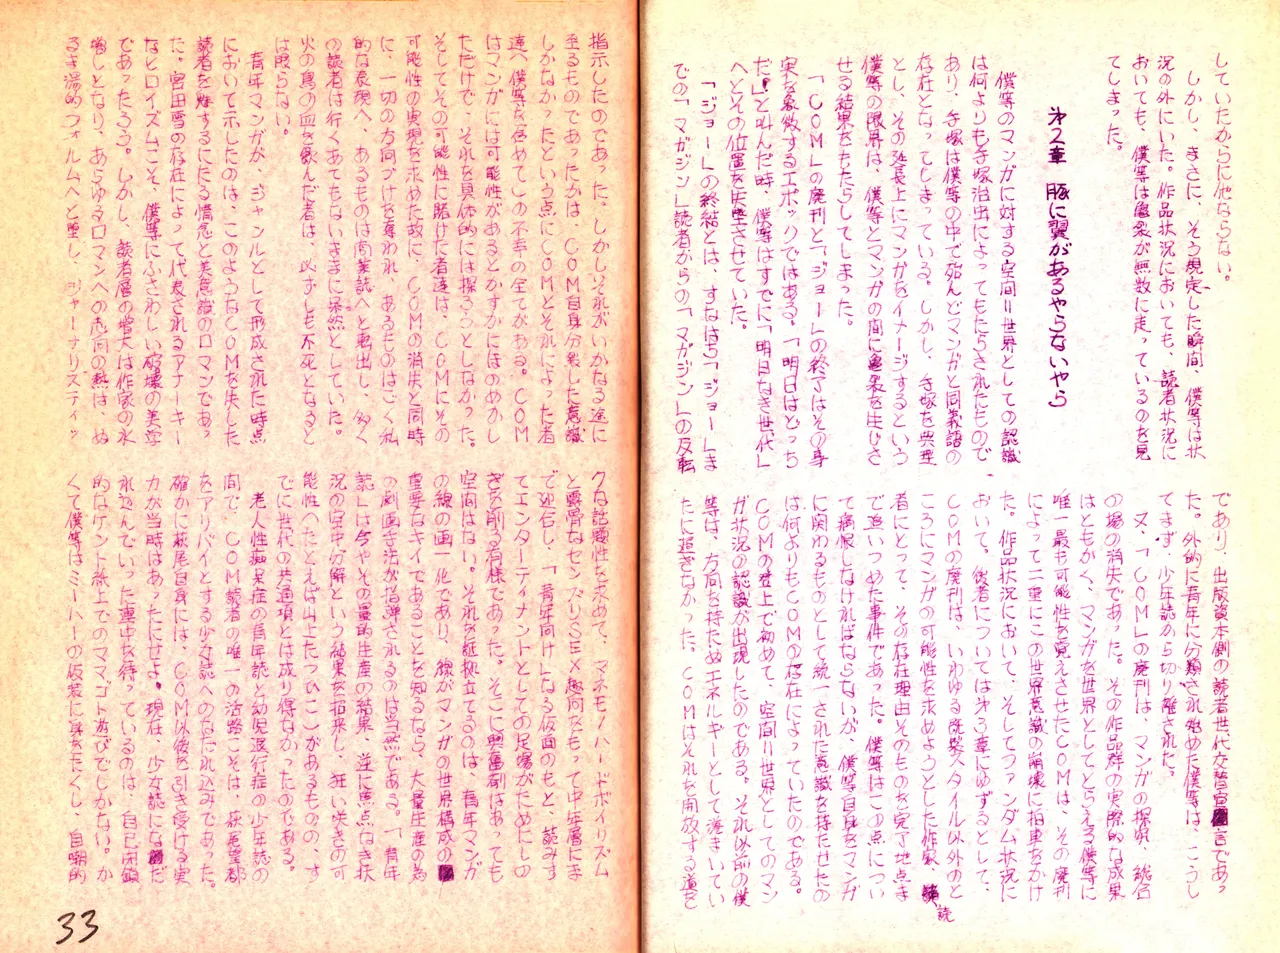 していたからに他ならない。
しかし、まさに、そう規定した瞬間、僕等は状
況の外にいた。作品状況においても、読者状況に
おいても、僕等は亀裂が無数に走っているのを見
てしまった。
第2章 豚に翼があるやらないやら
僕等のマンガに対する空間=世界としての認識
は何よりも手塚治虫によってもたらされたもので
あり、手塚は僕等の中で殆んどマンガと同義語の
存在となってしまっている。しかし、手塚を典型
とし、その延長上にマンガをイメージするという
僕等の限界は、僕等とマンガの間に亀裂を生じさ
せる結果をもたらしてしまった。
「COM」の廃刊と「ジョー」の終了はその身
実を象徴するエポックではある。「明日はどっち
だ」と叫んだ時、僕等はすでに「明日なき世代」
へとその位置を失墜させていた。
「ジョー」の終結とは、すなはち「ジョー」ま
での「マガジン」読者からの「マガジン」の反転
であり、出版資本側の読者世代交替宣言であっ
た。外的に青年に分類され始めた僕等は、こうし
てまず、少年誌から切り離された。
又、「COM」の廃刊は、マンガの探求、統合
の場の消失であった。その作品群の実際的な成果
はともかく、マンガを世界としてとらえる僕等に
唯一最も可能性を覚えさせたCOMは、その廃刊
によって二重にこの世界意識の崩壊に拍車をかけ
た。作品状況において、そしてファンダム状況に
おいて。後者については第3章にゆずるとして、
COMの廃刊は、いわゆる既製スタイル以外のと
ころにマンガの可能性を求めようとした作家、読
者にとって、その存在理由そのものを完了地点ま
で追いつめた事件であった。僕等はこの点につい
て痛恨しなければならないが、僕等自身をマンガ
に関わるものとして統一された意識を持たせたの
は何よりもCOMの存在によっていたのである。
COMの登上で初めて、空間=世界としてのマン
ガ状況の認識が出現したのである。それ以前の僕
等は、方向を持たぬエネルギーとして渦まいてい
たに過ぎなかった。COMはそれを開放する道を
指示したのであった。しかしそれがいかなる途に
至るものであったかは、COM自身分裂した意識
しかなかったという点にCOMとそれによった者
達へ僕等を含めての不幸の全てがある。COM
はマンガには可能性があるとかすかにほのめかし
ただけで、それを具体的には探ろうとしなかった。
そしてその可能性に賭けた者達は、COMにその
可能性の実現を求めた故に、COMの消失と同時
に、一切の方向づけを奪われ、あるものはごく私
的な表現へ、あるものは商業誌へと転出し、多く
の読者は行くあてもないままに呆然としていた。
火の鳥の血を飲んだ者は、必ずしも不死となると
は限らない。
青年マンガが、ジャンルとして形成された時点
において示したのは、このようなCOMを失した
読者を酔するにたる情念と美意識のロマンであっ
た。宮田雪の存在によって代表されるアナーキー
なヒロイズムこそ、僕等にふさわしい破壊の美学
であったろう。しかし、読者層の増大は作家の水
増しとなり、あらゆるロマンへの志向の熱は、ぬ
るま湯的フォルムへと堕し、ジャーナリスティッ
クな話題性を求めて、マネモノハードボイリズム
と露骨なセンズリSEX趣向をもって中年層にま
で迎合し、「青年向け」なる仮面のもと、読みす
てエンターティナントとしての足場がためにしの
ぎを削る有様であった。そこに興奮剤はあっても
空間はない。それを証拠立てるのは、青年マンガ
の線の画一化であり、線がマンガの世界構成の
重要なキイであることを知るなら、大量生産の為
の劇画手法が指弾されるのは当然である。「青年
誌」は今やその量的生産の結果、逆に焦点なき状
況の空中分解という結果を招来し、狂い咲きの可
能性へたとえば山上たつひこ)があるものの、す
でに世代の共通項とは成り得なかったのである。
老人性痴呆症の青年誌と幼児退行症の少年誌の
間で、COM読者の唯一の活路こそは、萩尾望都
をアリバイとする少女誌へのなだれ込みであった。
確かに萩尾自身には、COM以後を引き受ける実
力が当時はあったにせよ。現在、少女誌になだ
れ込んでいった連中を待っているのは、自己閉鎖
的なケント紙上でのママゴト遊びでしかない。か
くて僕等はミーハーの仮装に身をたくし、自嘲的
33